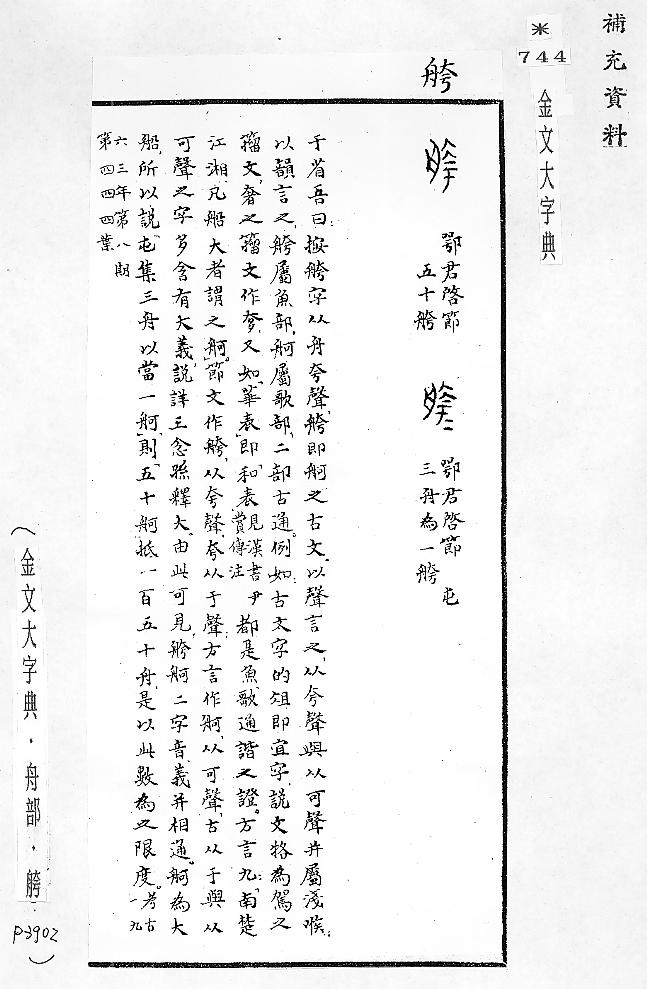 補充資料
※
744
金文大字典
舿
鄂君啓節
五十舿
鄂君啓節 屯
三舟為一舿
于省吾曰：按舿字从舟夸聲，舿即舸之古文。以聲言之，从夸聲與从可聲并屬淺喉；
以韻言之，舿屬魚部，舸屬歌部，二部古通。例如：古文字的俎即宜字，說文袼為駕之
籀文，奢之籀文作奓，又如「華表」即「和表」見漢書尹賞傳注都是魚歌通諧之證。方言九：「南楚
江湘，凡船大者謂之舸。」節文作舿，从夸聲，夸从于聲；方言作舸，从可聲，古从于與从
可聲之字多含有大義，說詳王念孫釋大。由此可見，舿舸二字音義并相通。舸為大
船，所以說「屯集三舟以當一舸」，則「五十舸」抵一百五十舟，是以此數為之限度。考古一九
六三年第八期
第四四四葉
（金文大字典．舟部．舿
P3902）